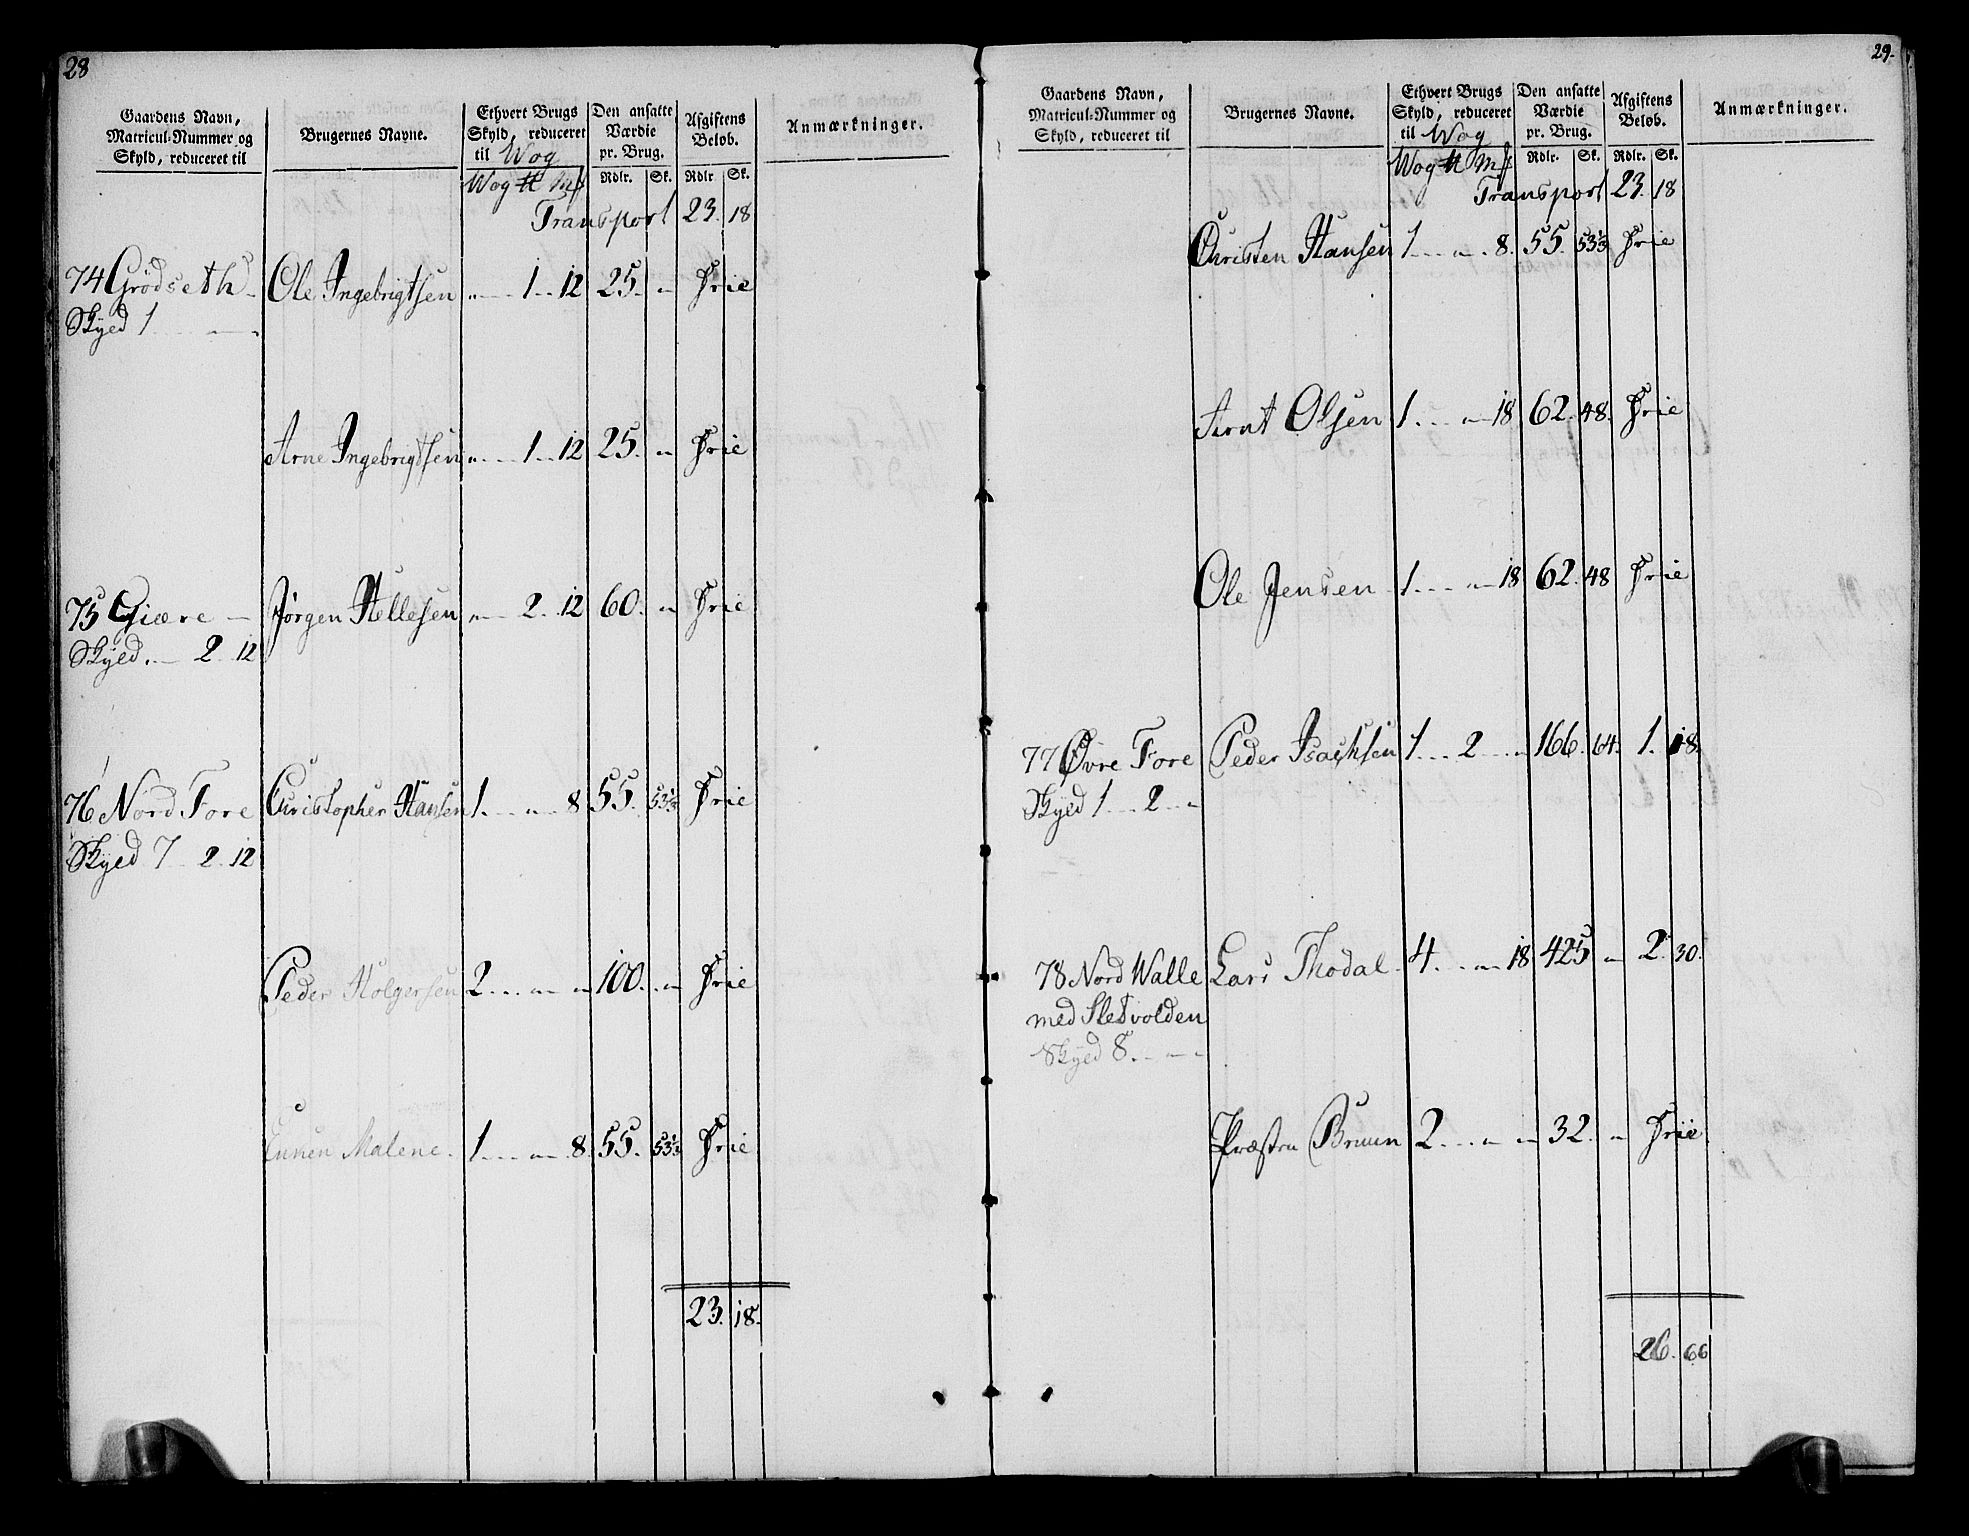 28
Gaardens Navn, Matricul-Nummer og Skyld, reduceret til
Brugernes Navne.
Ethvert Brugs Skyld, reduceret til Wog
Den ansatte Værdie pr. Brug.
Afgiftens Beløb.
Anmærkninger.
Wog ℔ mƒ Rdlr. Sk. Rdlr Sk.
Transport 23. 18
74 Grödseth Ole Ingebrigtsen „ 1 12 25. „ Frie
Skyld 1 „ „
Arne Ingebrigtsen „ 1 12 25. „ Frie
75 Giære Jørgen Hellesen „ 2 12 60. „ Frie
Skyld „ 2 12
76 Nord Fore Christopher Hansen 1 „ 8 55. 53⅓ Frie
Skyld 7 2 12
Peder Holgersen 2 „ „ 100. „ Frie
Malene. 1 „ 8. 55. 53⅓ Frie
23. 18.
29.
Gaardens Navn, Matricul-Nummer og Skyld, reduceret til
Brugernes Navne.
Ethvert Brugs Skyld, reduceret til Wog
Den ansatte Værdie pr. Brug.
Afgiftens Beløb.
Anmærkninger.
Wog ℔ mƒ Rdlr. Sk. Rdlr. Sk.
Transport 23. 18
Christen Hansen 1 „ 8. 55. 53⅓ Frie
Arnt Olsen 1 „ 18 62. 48. Frie
Ole Jensen 1 „ 18 62. 48 Frie
77 Øvre Fore Peder Isachsen 1 2 „ 166. 64. 1. 18.
Skyld 1 2 „
78 Nord Walle Lars Thodal 4. „ 18 425 „ 2. 30.
med Sletvolden
Skyld 8. „ „
Præsten Bruun 2 „ „ 32. „ Frie
26. 66